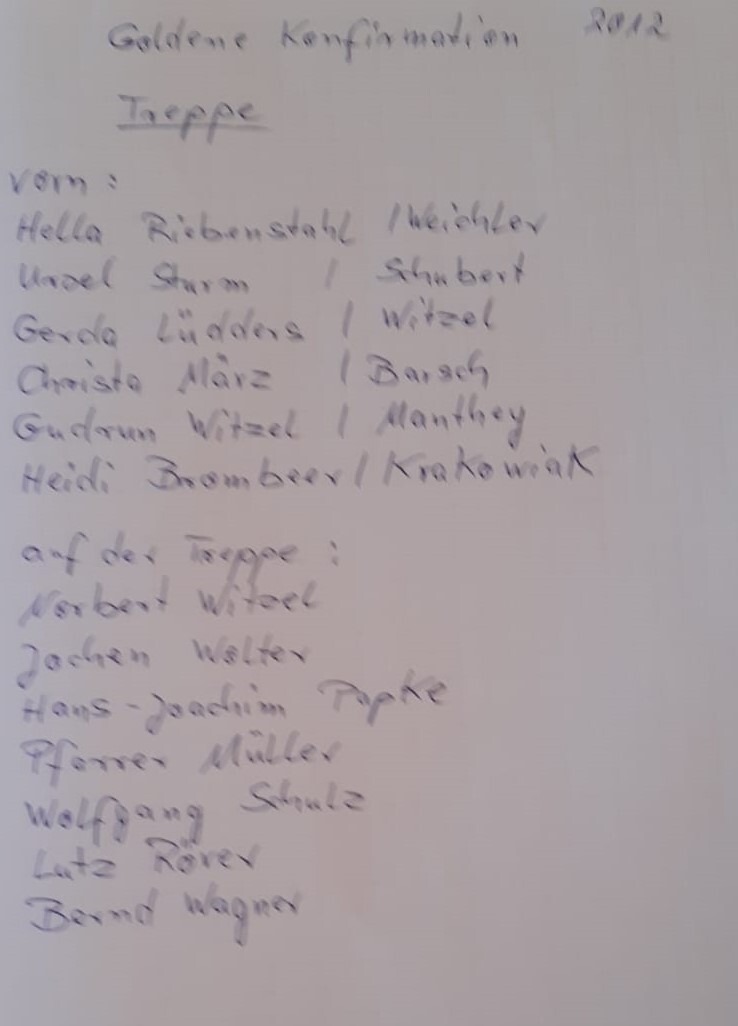 Goldene Konfirmation 2012
Treppe
vorn:
Hella Riebenstahl / Weichler
Ursel Sturm / Schubert
Gerda Lüdders / Witzel
Christa März / Barsch
Gudrun Witzel / Manthey
Heidi Brombeer / Krakowiak
auf der Treppe:
Norbert Witzel
Jochen Wolter
Hans-Joachim Papke
Pfarrer Müller
Wolfgang Schulz
Lutz Rörer
Bernd Wagner